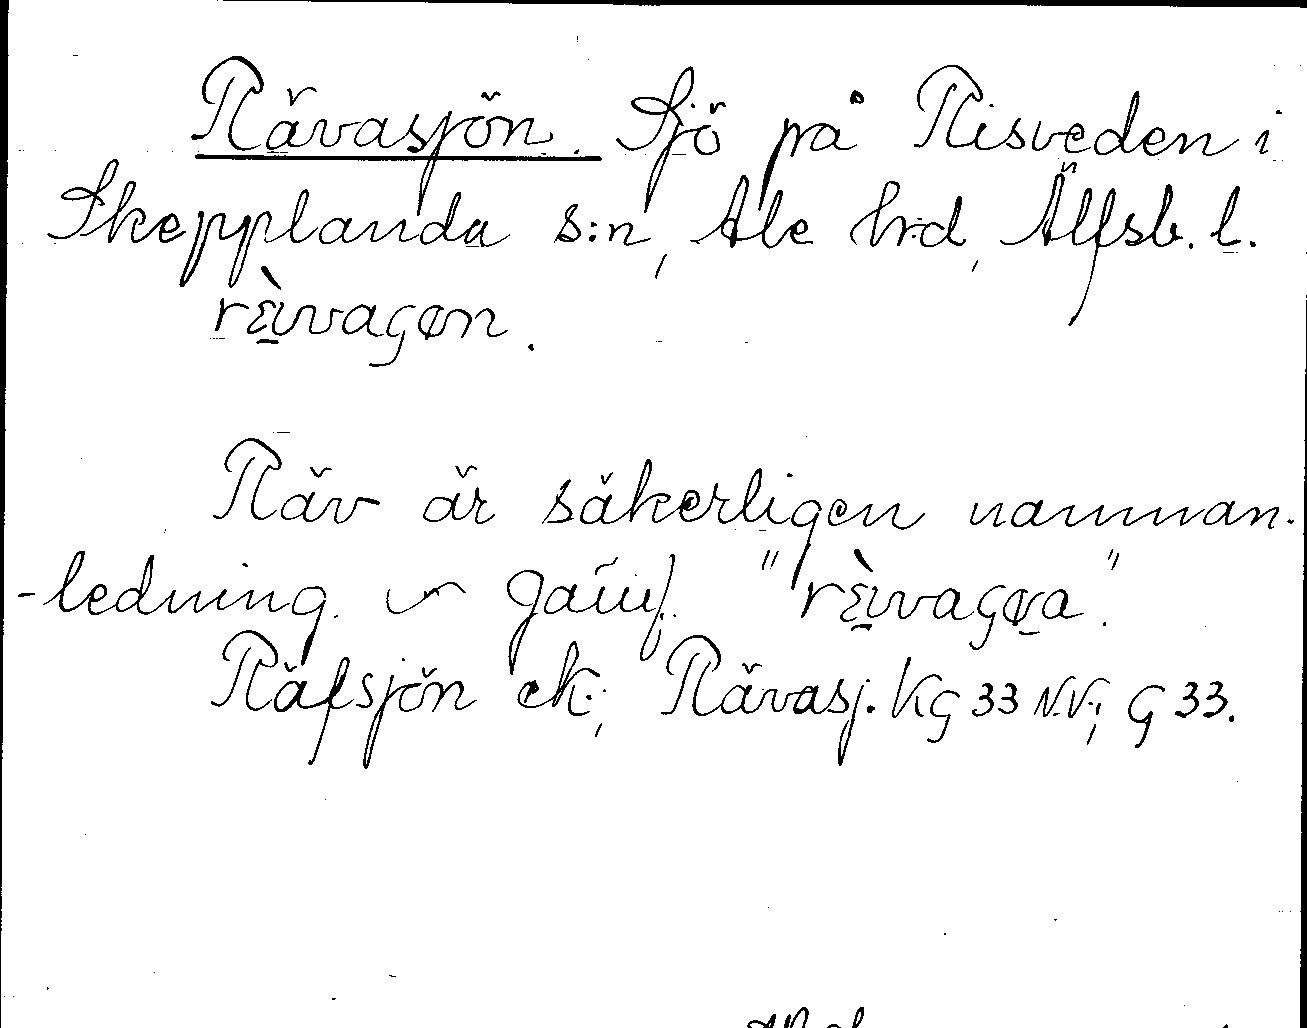 Rävasjön. Sjö på Risveden i
Skepplanda s:n, Ale hd, Älfsb. l.
rɛ̀vaɢøn.
Räv är säkerligen namnan-
-ledning. ~ Jämf. "rɛ̀vaɢøa".
Räfsjön ek.; Rävasj. KG 33 N.V.; G 33.